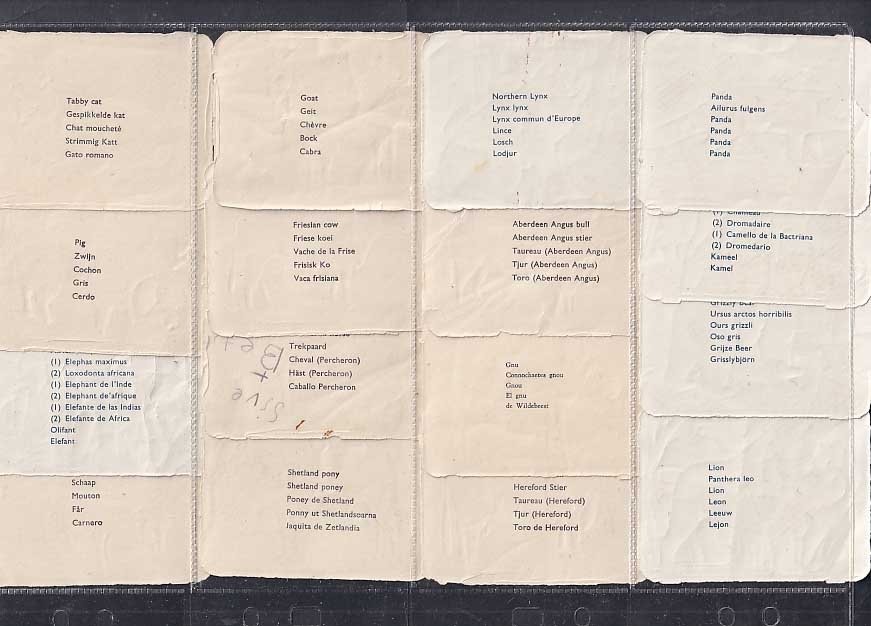 Tabby cat
Gespikkelde kat
Chat moucheté
Strimmig Katt
Gato romano
Pig
Zwijn
Cochon
Gris
Cerdo
(1) Elephas maximus
(2) Loxodonta africana
(1) Elephant de l'Inde
(2) Elephant de'afrique
(1) Elefante de las Indias
(2) Elefante de Africa
Olifant
Elefant
Schaap
Mouton
Får
Carnero
Goat
Geit
Chèvre
Bock
Cabra
Friesian cow
Friese koei
Vache de la Frise
Frisisk Ko
Vaca frisiana
Trekpaard
Cheval (Percheron)
Häst (Percheron)
Caballo Percheron
Shetland pony
Shetland poney
Poney de Shetland
Ponny ut Shetlandsoarna
Jaquita de Zetlandia
Northern Lynx
Lynx lynx
Lynx commun d'Europe
Lince
Losch
Lodjur
Aberdeen Angus bull
Aberdeen Angus stier
Taureau (Aberdeen Angus)
Tjur (Aberdeen Angus)
Toro (Aberdeen Angus)
Gnu
Connochaetes gnou
Gnou
El gnu
de Wildebeest
Hereford Stier
Taureau (Hereford)
Tjur (Hereford)
Toro de Hereford
Panda
Ailurus fulgens
Panda
Panda
Panda
Panda
(1) Chameau
(2) Dromadaire
(1) Camello de la Bactriana
(2) Dromedario
Kameel
Kamel
Grizzly bear
Ursus arctos horribilis
Ours grizzli
Oso gris
Grijze Beer
Grisslybjörn
Lion
Panthera leo
Lion
Leon
Leeuw
Lejon